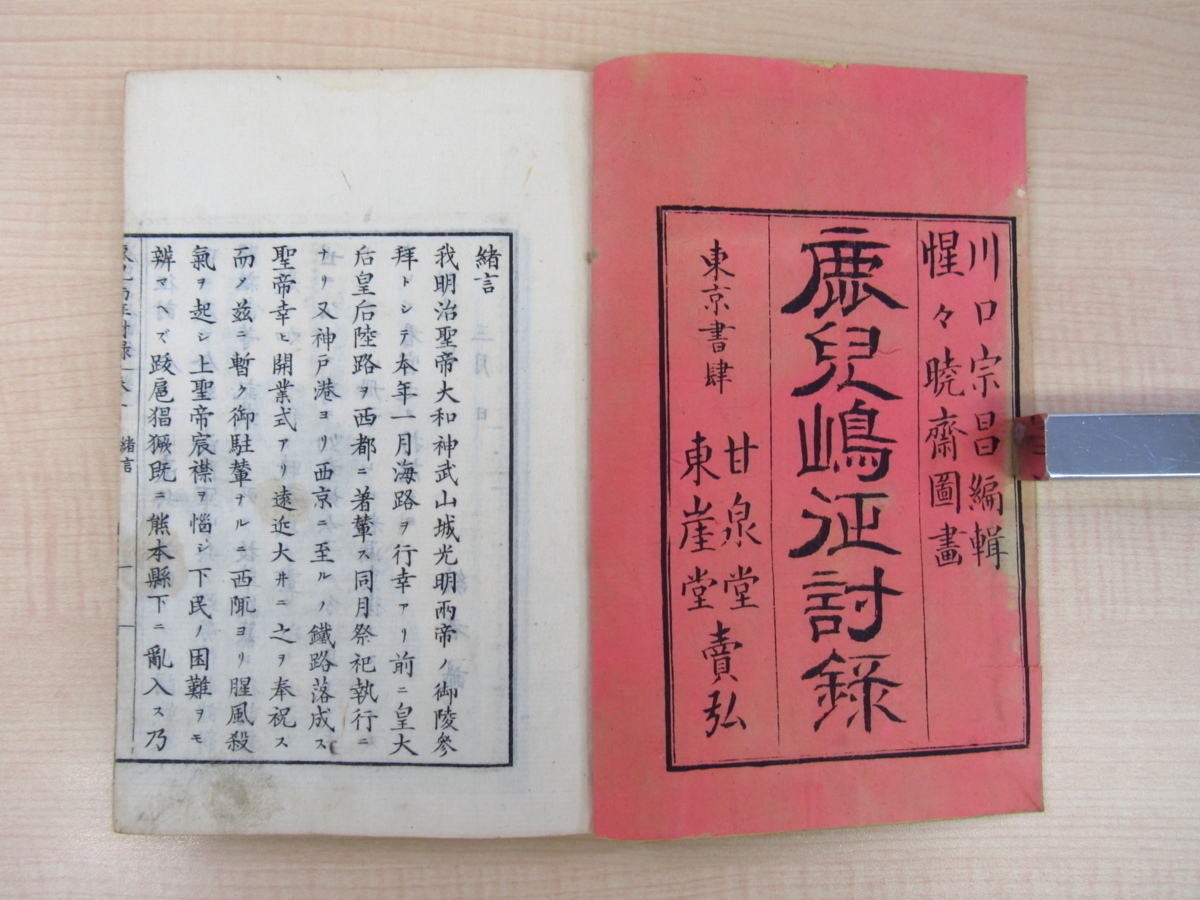 川口宗昌編輯
惺々暁齋圖畫
鹿兒嶋征討錄
東京書肆
甘泉堂
東崖堂
賣弘
緒言
我明治聖帝大和神武山城光明兩帝ノ御陵參
拜トシテ本年一月海路ヲ行幸アリ前ニ皇大
后皇后陸路ヲ西都ニ著輦ス同月祭祀執行ニ
ナリ又神戸港ヨリ西京ニ至ルノ鐵路落成ス
聖帝幸ヒ開業式アリ遠近大ヰニ之ヲ奉祝ス
而〆茲ニ暫ク御駐輦ヲルニ西陬ヨリ腥風殺
氣ヲ起シ上聖帝宸襟ヲ惱シ下民ノ困難ヲモ
辨マヘズ跋扈猖獗既ニ熊本縣下ニ亂入ス乃
緒言